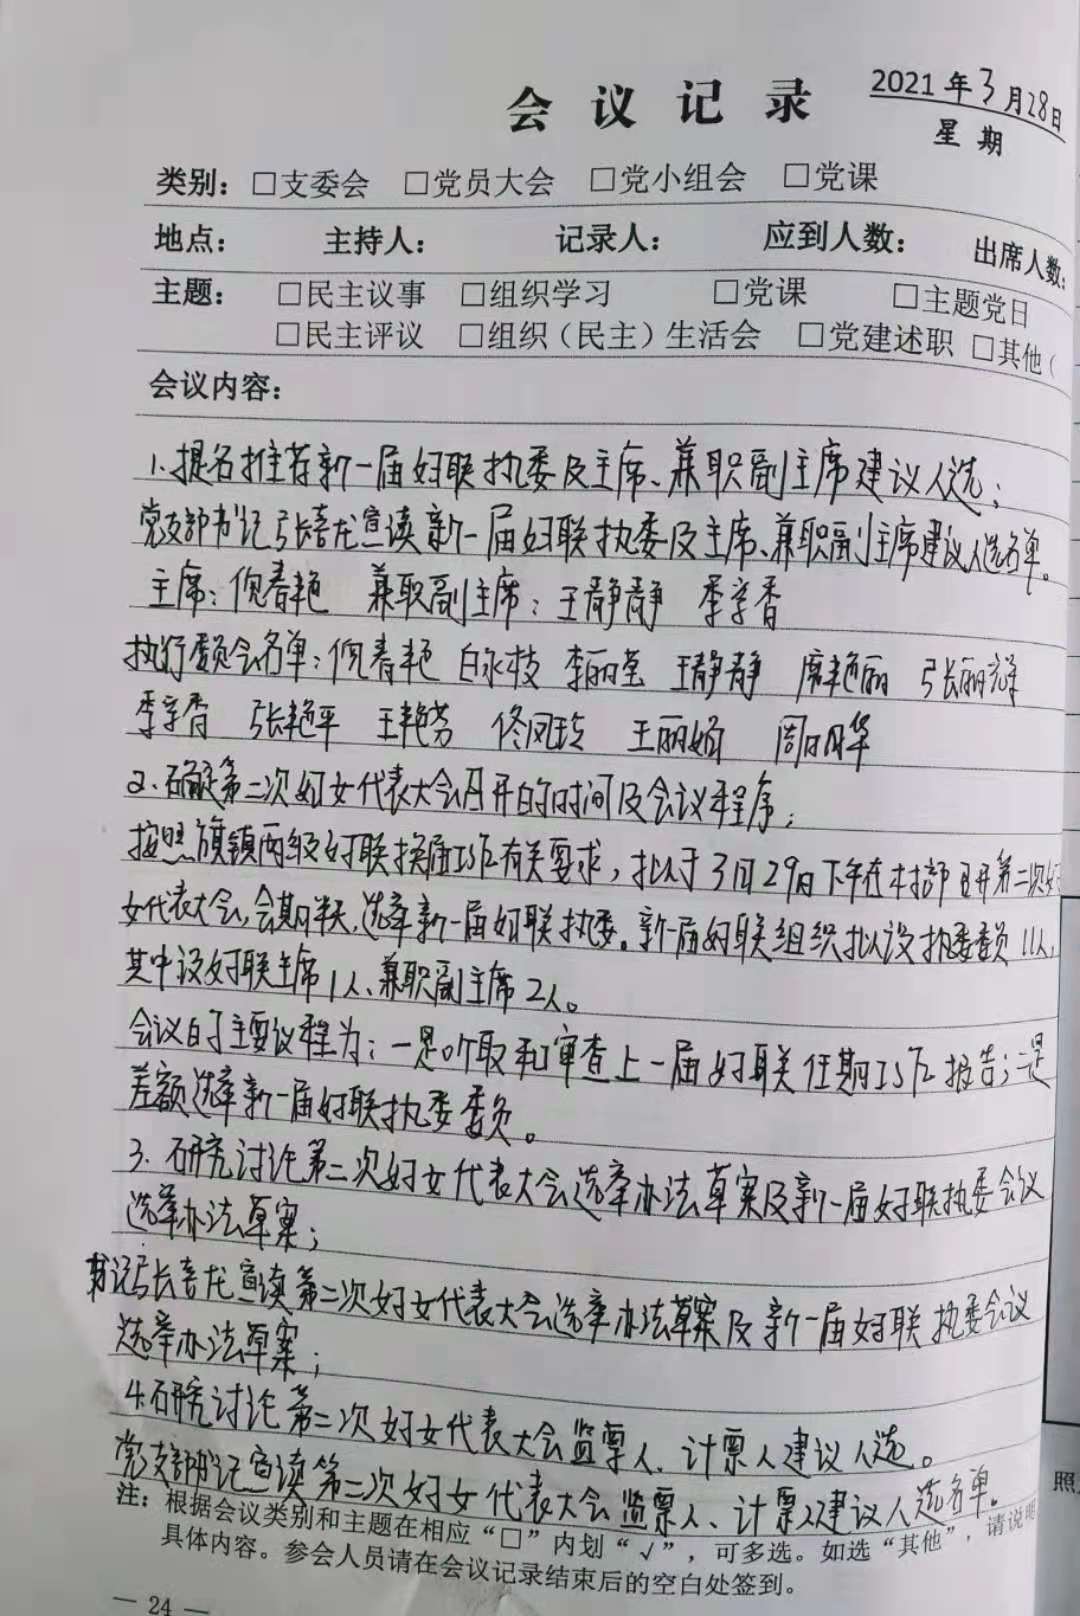 2021年3月28日
会议记录
星期
类别：□支委会 □党员大会 □党小组会 □党课
地点： 主持人： 记录人： 应到人数： 出席人数：
主题： □民主议事 □组织学习 □党课 □主题党日
□民主评议 □组织（民主）生活会 □党建述职 □其他（
会议内容：
1.提名推荐新一届妇联执委及主席、兼职副主席建议人选；
党支部书记张喜龙宣读新一届妇联执委及主席、兼职副主席建议人选名单。
主席：倪春艳 兼职副主席：王静静 季享香
执行委员会名单：倪春艳 白永枝 李丽莹 王静静 席艳丽 张丽祥
季享香 张艳平 王艳芬 佟凤玲 王丽娟 周月华
2.确定第二次妇女代表大会召开的时间及会议程序；
按照旗镇两级妇联换届工作有关要求，拟于3月29日下午在村部召开第二次妇
女代表大会，会期半天，选举新一届妇联执委。新一届妇联组织拟设执委委员11人，
其中设妇联主席1人、兼职副主席2人。
会议的主要议程为：一是听取和审查上一届妇联任期工作报告；二是
差额选举新一届妇联执委委员。
3.研究讨论第二次妇女代表大会选举办法草案及新一届妇联执委会议
选举办法草案；
书记张喜龙宣读第二次妇女代表大会选举办法草案及新一届妇联执委会议
选举办法草案；
4.研究讨论第二次妇女代表大会监票人、计票人建议人选。
党支部书记宣读第二次妇女代表大会监票人、计票人建议人选名单。
注：根据会议类别和主题在相应“□”内划“√”，可多选。如选“其他”，请说明
具体内容。参会人员请在会议记录结束后的空白处签到。
— 24 —
照